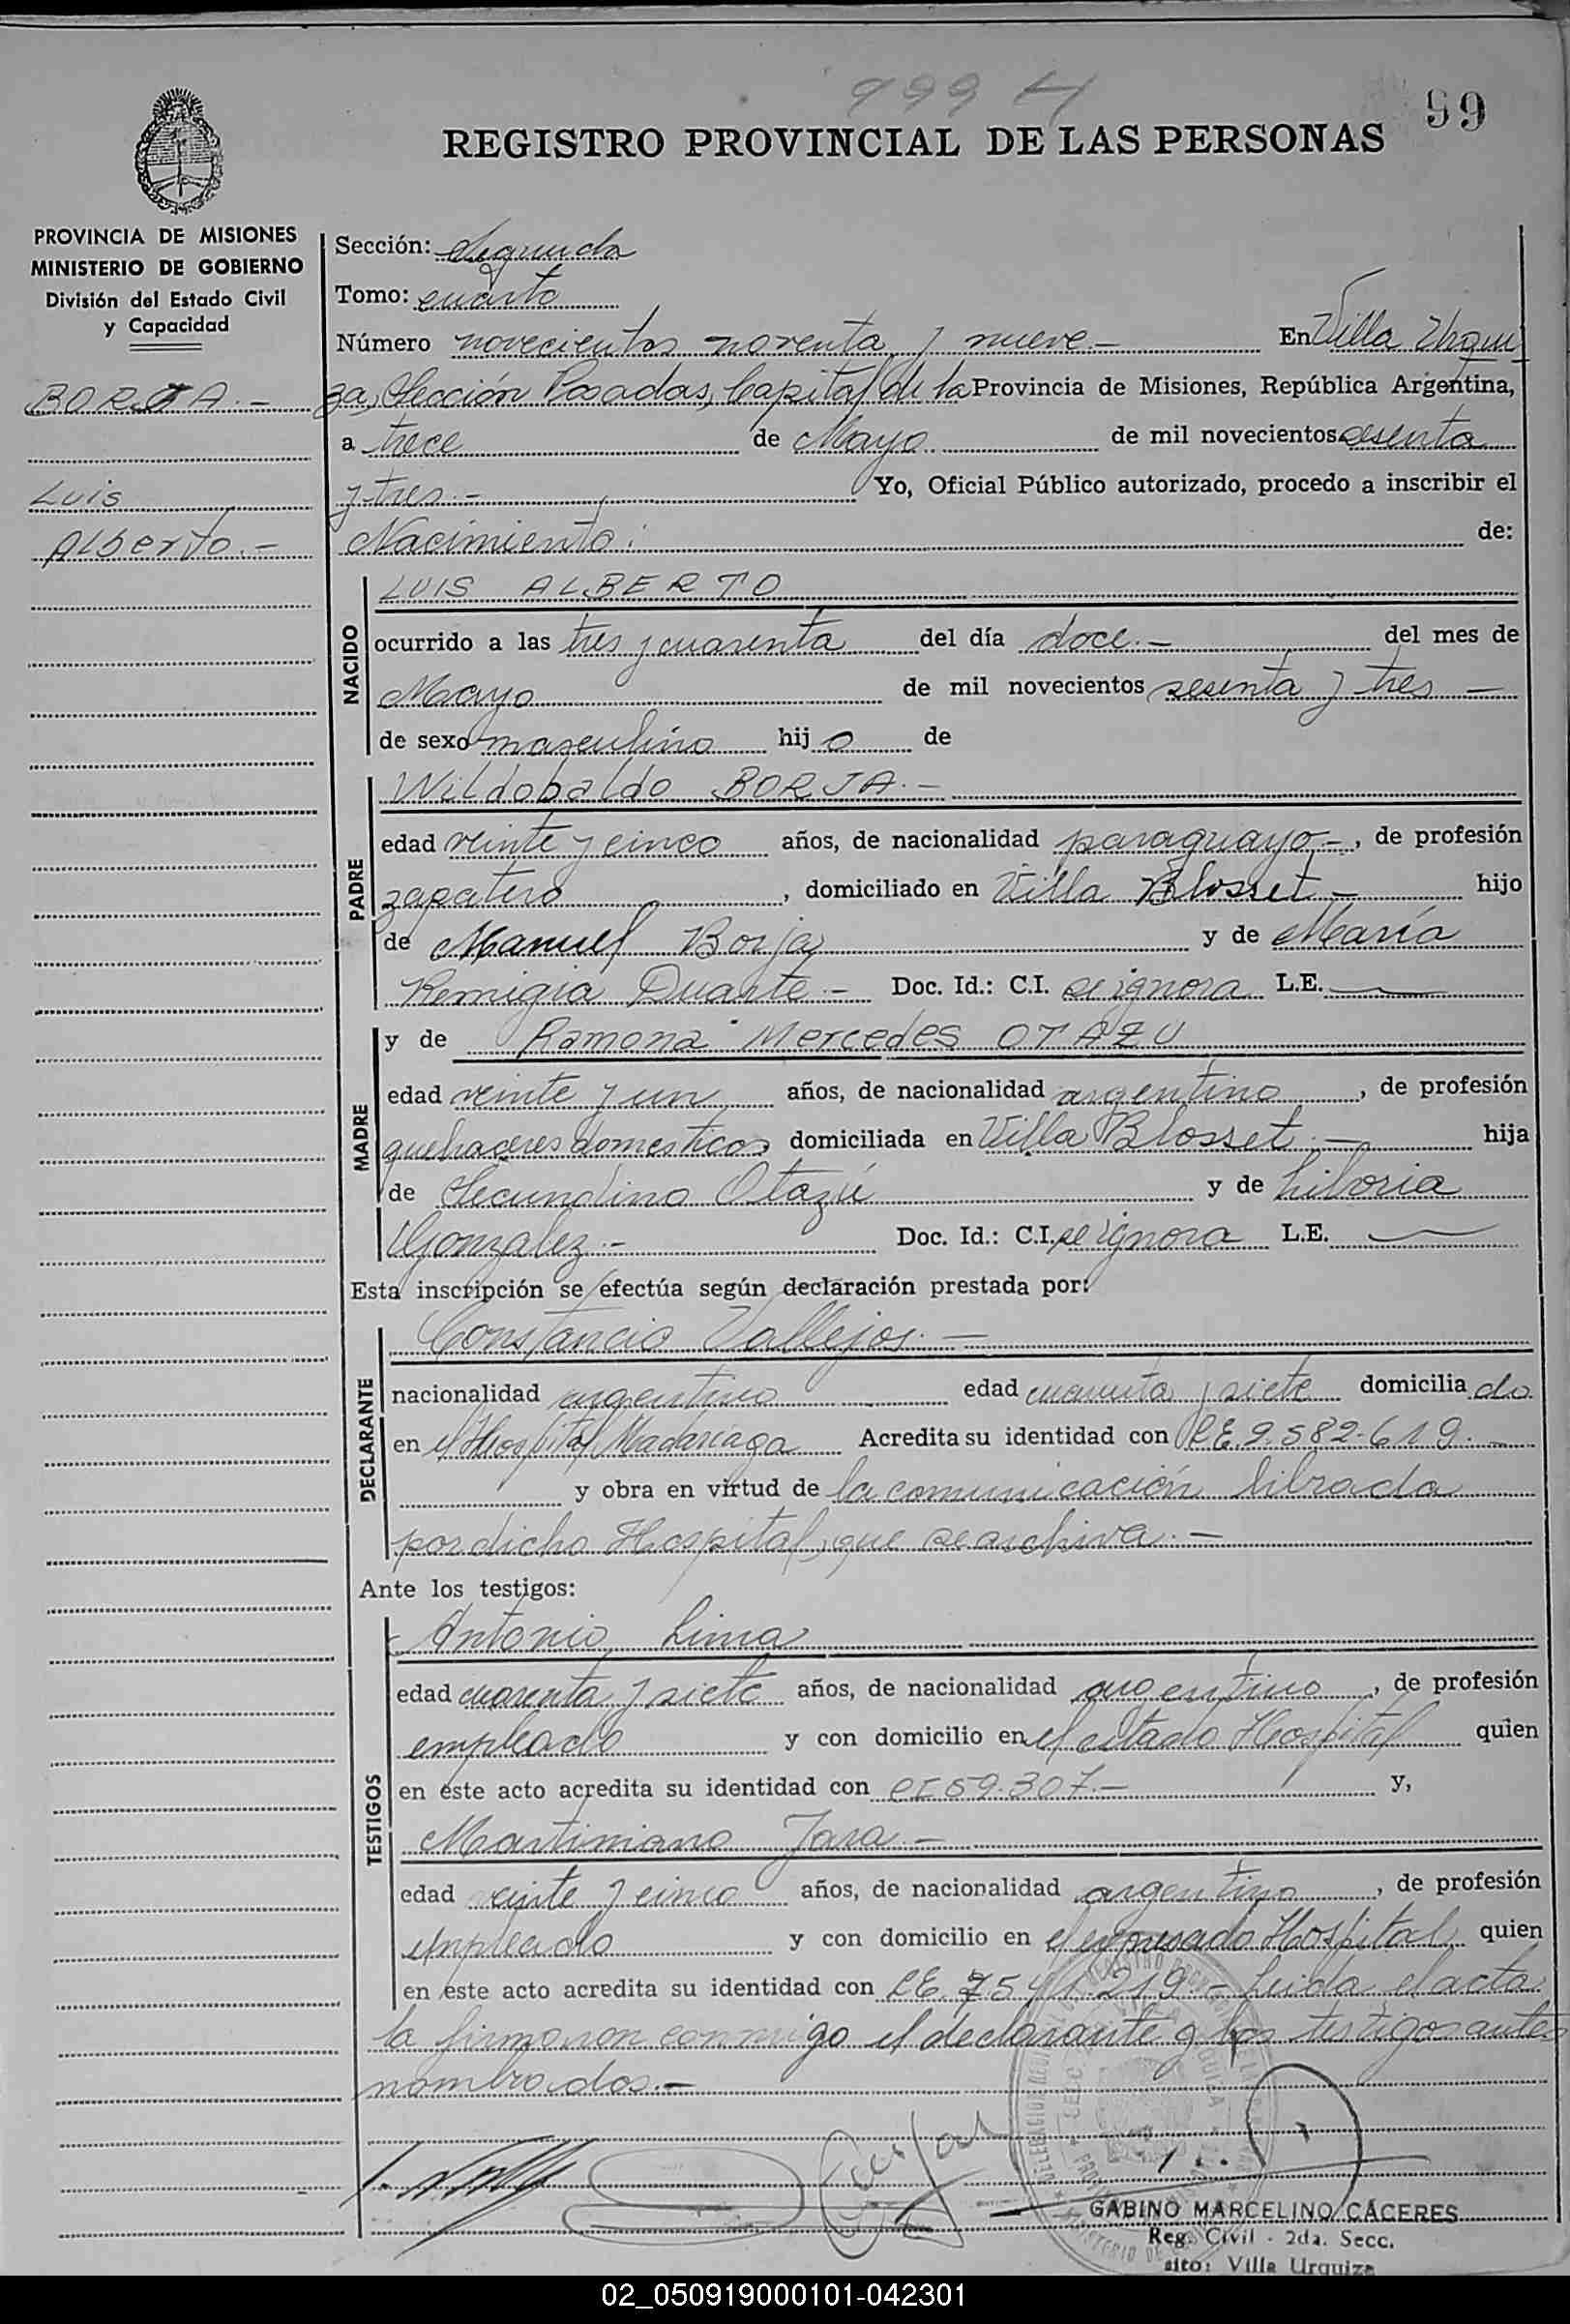 999 H
99
REGISTRO PROVINCIAL DE LAS PERSONAS
PROVINCIA DE MISIONES
MINISTERIO DE GOBIERNO
División del Estado Civil
y Capacidad
BORJA.-
Luis
Alberto.-
Sección: Segunda
Tomo: cuarto
Número novecientos noventa y nueve.- En Villa Urqui
za, Sección Posadas, Capital de la Provincia de Misiones, República Argentina,
a trece de Mayo de mil novecientos sesenta
y tres.- Yo, Oficial Público autorizado, procedo a inscribir el
Nacimiento: de:
NACIDO
LUIS ALBERTO
ocurrido a las tres y cuarenta del día doce.- del mes de
Mayo de mil novecientos sesenta y tres -
de sexo masculino hijo de
PADRE
Wildobaldo BORJA.-
edad veinte y cinco años, de nacionalidad paraguayo-, de profesión
zapatero, domiciliado en Villa Blosset- hijo
de Manuel Borja y de María
Remigia Duarte.- Doc. Id.: C.I. se ignora L.E.
MADRE
y de Ramona Mercedes OTAZU
edad veinte y un años, de nacionalidad argentina, de profesión
quehaceres domesticos domiciliada en Villa Blosset.- hija
de Secundino Otazú y de Liboria
Gonzalez.- Doc. Id.: C.I. se ignora L.E.
Esta inscripción se efectúa según declaración prestada por:
DECLARANTE
Constancio Vallejos.-
nacionalidad argentino edad cuarenta y siete domiciliado
en el Hospital Madariaga Acredita su identidad con LE.9.582.619.-
y obra en virtud de la comunicación librada
por dicho Hospital, que se archiva.-
Ante los testigos:
TESTIGOS
Antonio Lima
edad cuarenta y siete años, de nacionalidad argentino, de profesión
empleado y con domicilio en el citado Hospital quien
en este acto acredita su identidad con CI 59.307.- y,
Martiniano Jara.-
edad veinte y cinco años, de nacionalidad argentino, de profesión
empleado y con domicilio en el expresado Hospital, quien
en este acto acredita su identidad con LE. 7.541.219.- Leida el acta
la firmaron conmigo el declarante y los testigos antes
nombrados.-
GABINO MARCELINO CÁCERES
Reg. Civil - 2da. Secc.
sito: Villa Urquiza
02_050919000101-042301